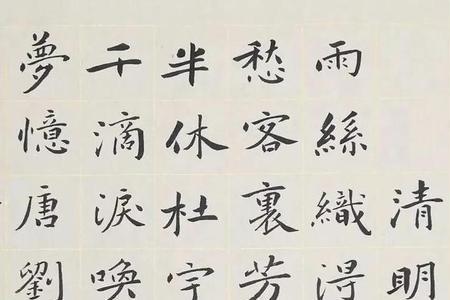 清明
雨絲織得
愁客裏芳
半休杜宇
千滴淚喚
夢憶唐劉